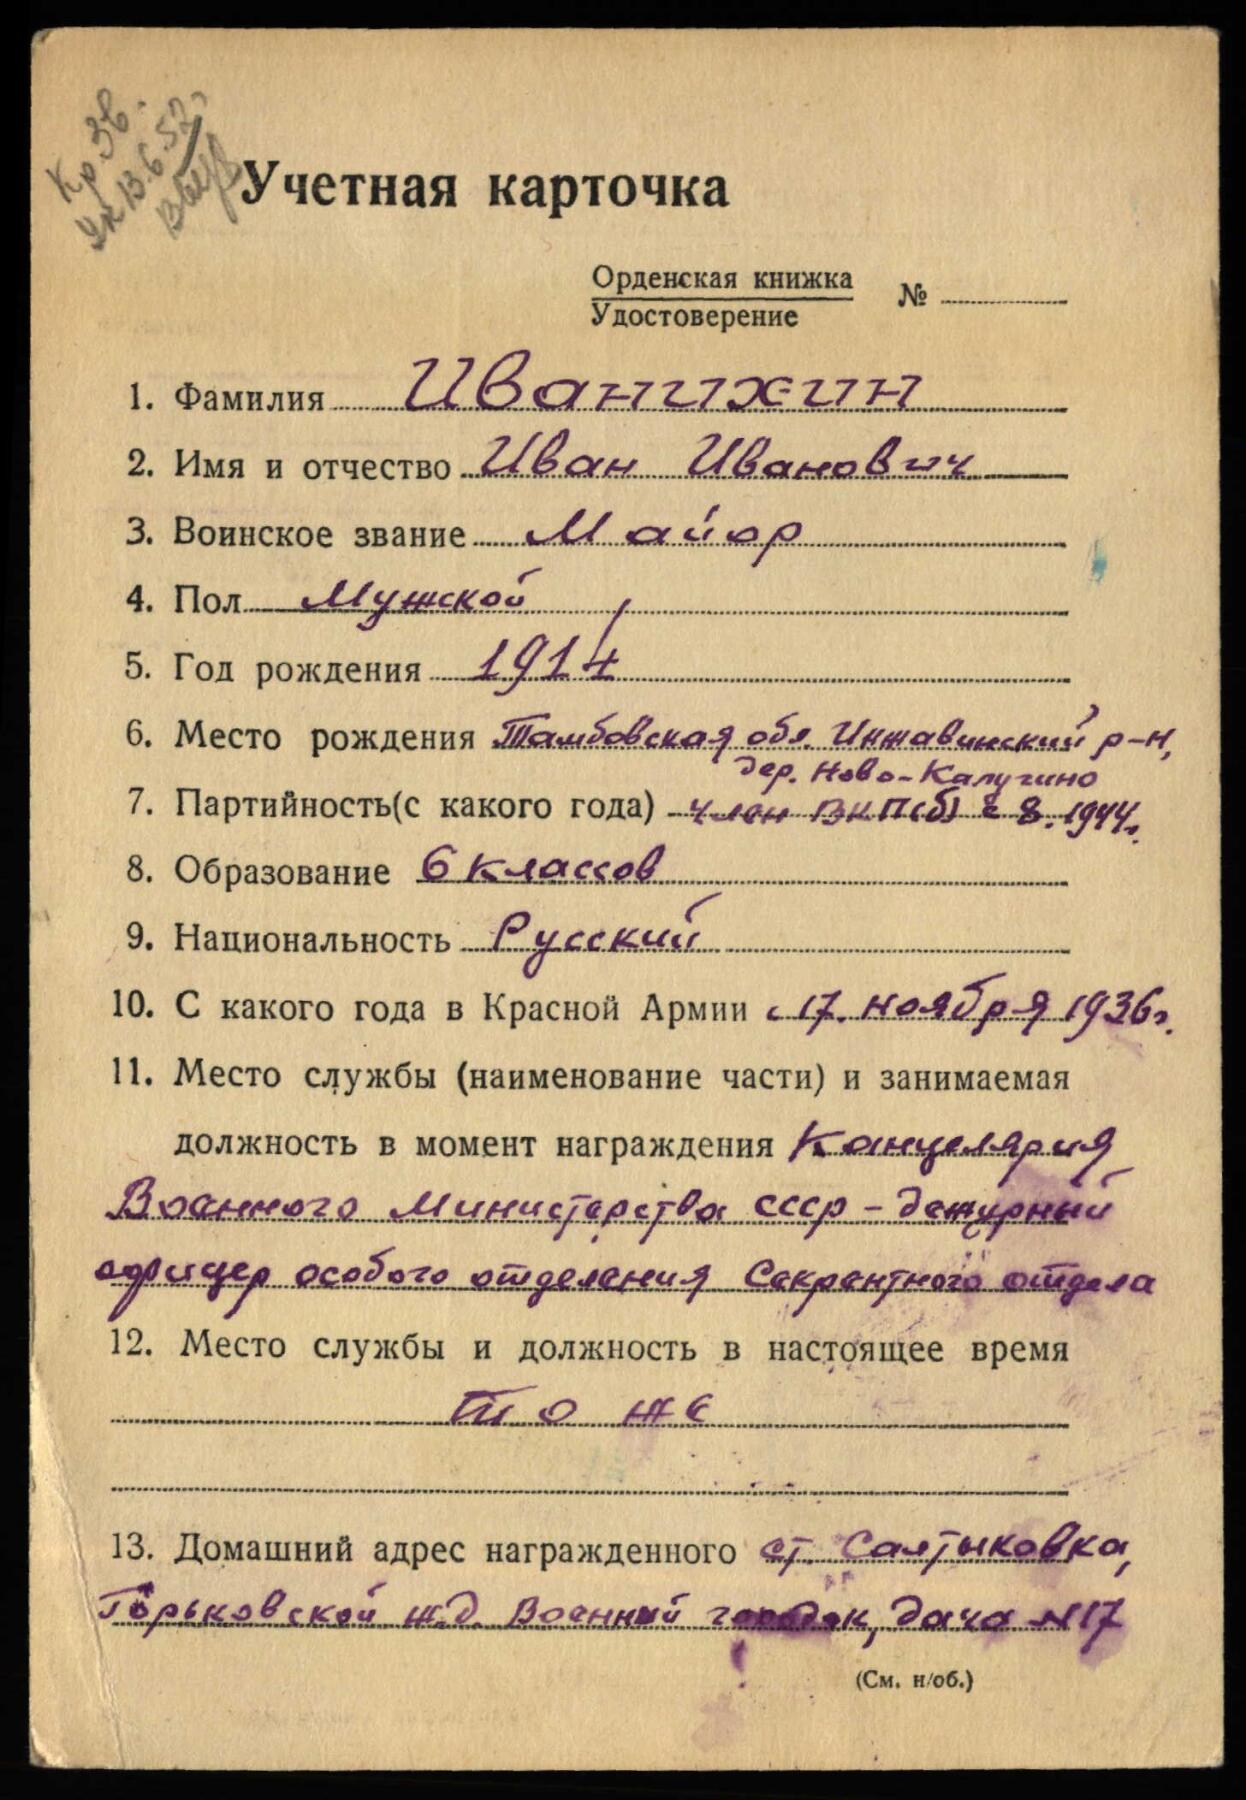 Кр. Зв.
Ук 13.6.52г
Учетная карточка
Орденская книжка
Удостоверение
№
1. Фамилия Иванихин
2. Имя и отчество Иван Иванович
3. Воинское звание Майор
4. Пол Мужской
5. Год рождения 1914
6. Место рождения Тамбовская обл. Инжавинский р-н,
дер. Ново-Калугино
7. Партийность(с какого года) член ВКП(б) с 8.1944г.
8. Образование 6 классов
9. Национальность Русский
10. С какого года в Красной Армии с 17. ноября 1936г.
11. Место службы (наименование части) и занимаемая
должность в момент награждения Канцелярия
Военного Министерства СССР - дежурный
офицер особого отделения Секретного отдела
12. Место службы и должность в настоящее время
То же
13. Домашний адрес награжденного ст. Салтыковка,
Горьковской ж.д. Военный городок, дача N 17
(См. н/об.)